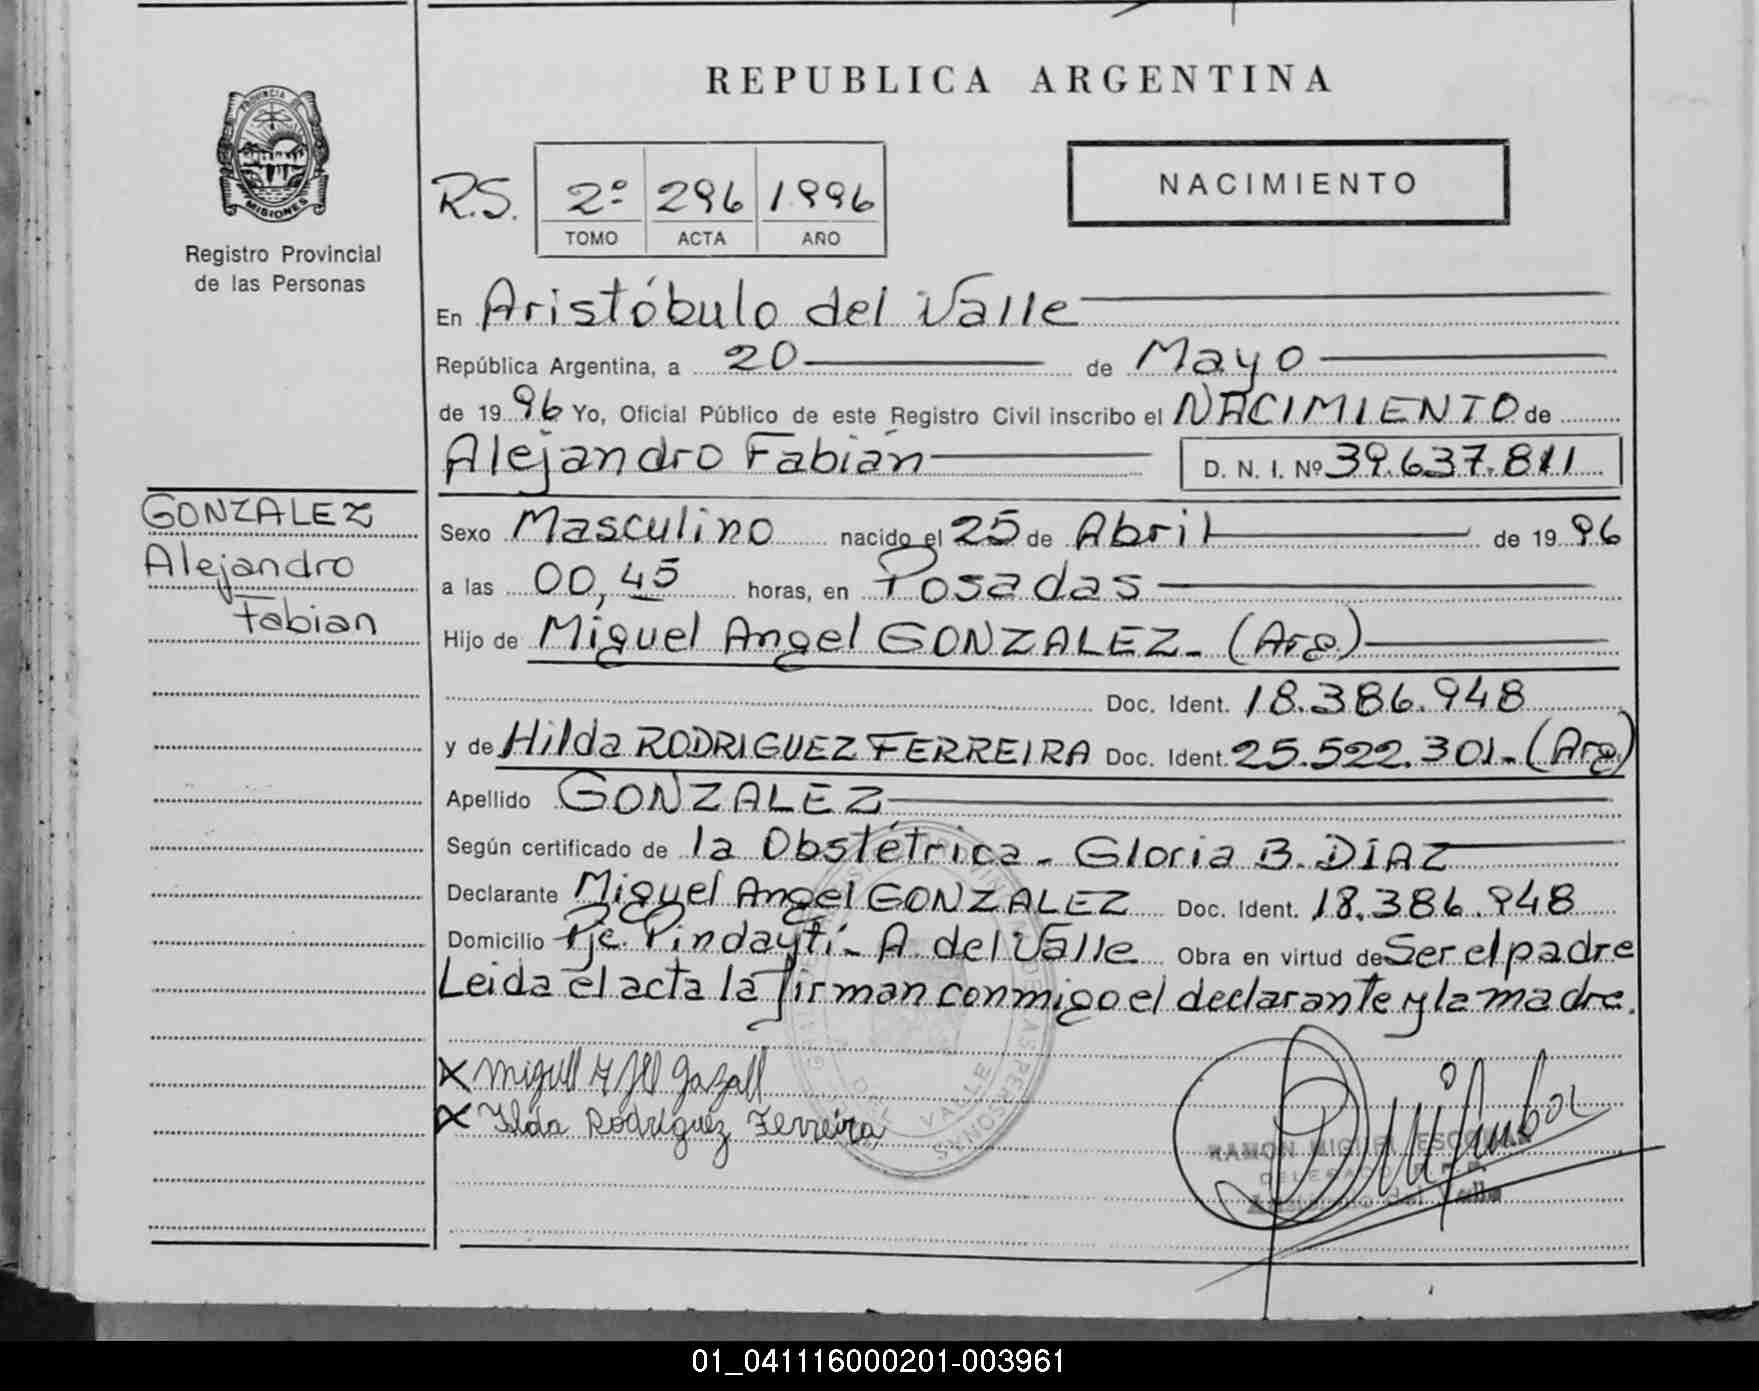 REPUBLICA ARGENTINA
PROVINCIA DE
MISIONES
Registro Provincial
de las Personas
R.S. 2º 296 1996
TOMO ACTA AÑO
NACIMIENTO
En Aristóbulo del Valle
República Argentina, a 20 de Mayo
de 1996 Yo, Oficial Público de este Registro Civil inscribo el NACIMIENTO de
Alejandro Fabián D. N. I. Nº 39.637.811
GONZALEZ
Alejandro
Fabian
Sexo Masculino nacido el 25 de Abril de 1996
a las 00,45 horas, en Posadas
Hijo de Miguel Angel GONZALEZ - (Arg)
Doc. Ident. 18.386.948
y de Hilda RODRIGUEZ FERREIRA Doc. Ident. 25.522.301.- (Arg)
Apellido GONZALEZ
Según certificado de la Obstétrica - Gloria B. DIAZ
Declarante Miguel Angel GONZALEZ Doc. Ident. 18.386.948
Domicilio Pje. Pindaytí - A. del Valle Obra en virtud de Ser el padre
Leida el acta la firman conmigo el declarante y la madre.
X Miguel
X Ilda Rodriguez Ferreira
VALLE
RAMON MIGUEL
DELEGADO
Aristobulo del Valle
01_041116000201-003961